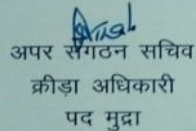 अपर संगठन सचिव
क्रीड़ा अधिकारी
पद मुद्रा